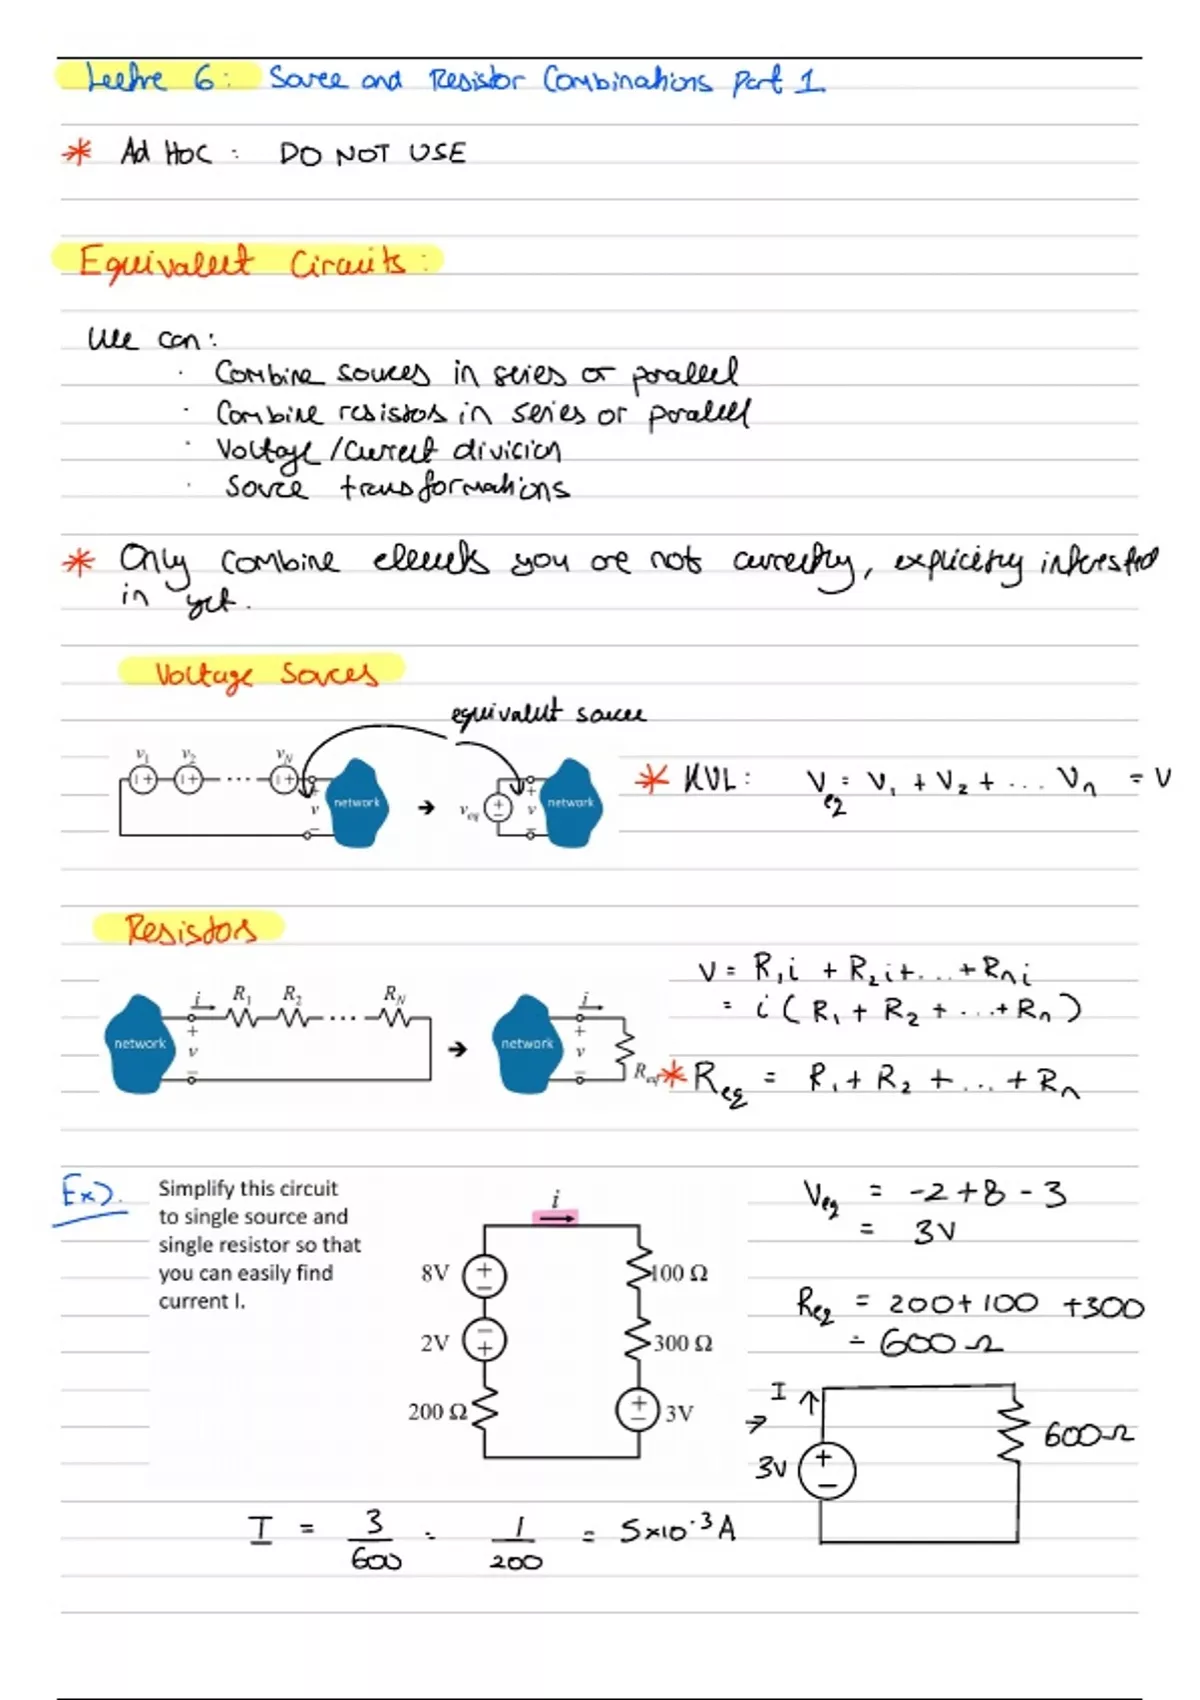 Lecture 6: Source and Resistor Combinations Part 1
* Ad Hoc : DO NOT USE
Equivalent Circuits:
We can:
· Combine sources in series or parallel
· Combine resistors in series or parallel
· Voltage/Current division
· Source transformations
* Only combine elements you are not currently, explicitly interested
in yet.
Voltage Sources
equivalent source
v1 v2 ... vN + v − network → veq + v − network
* KVL: Veq = V1 + V2 + ... Vn = V
Resistors
V = R1i + R2i + ... + Rni
= i (R1 + R2 + ... + Rn)
network i + v − R1 R2 ... RN → network i + v − Req
* Req = R1 + R2 + ... + Rn
Ex).
Simplify this circuit
to single source and
single resistor so that
you can easily find
current I.
i
8V
100 Ω
2V
300 Ω
200 Ω
3V
Veq = -2+8-3
= 3V
Req = 200+100+300
= 600Ω
→ I
3V
600Ω
I = 3/600 = 1/200 = 5×10-3 A